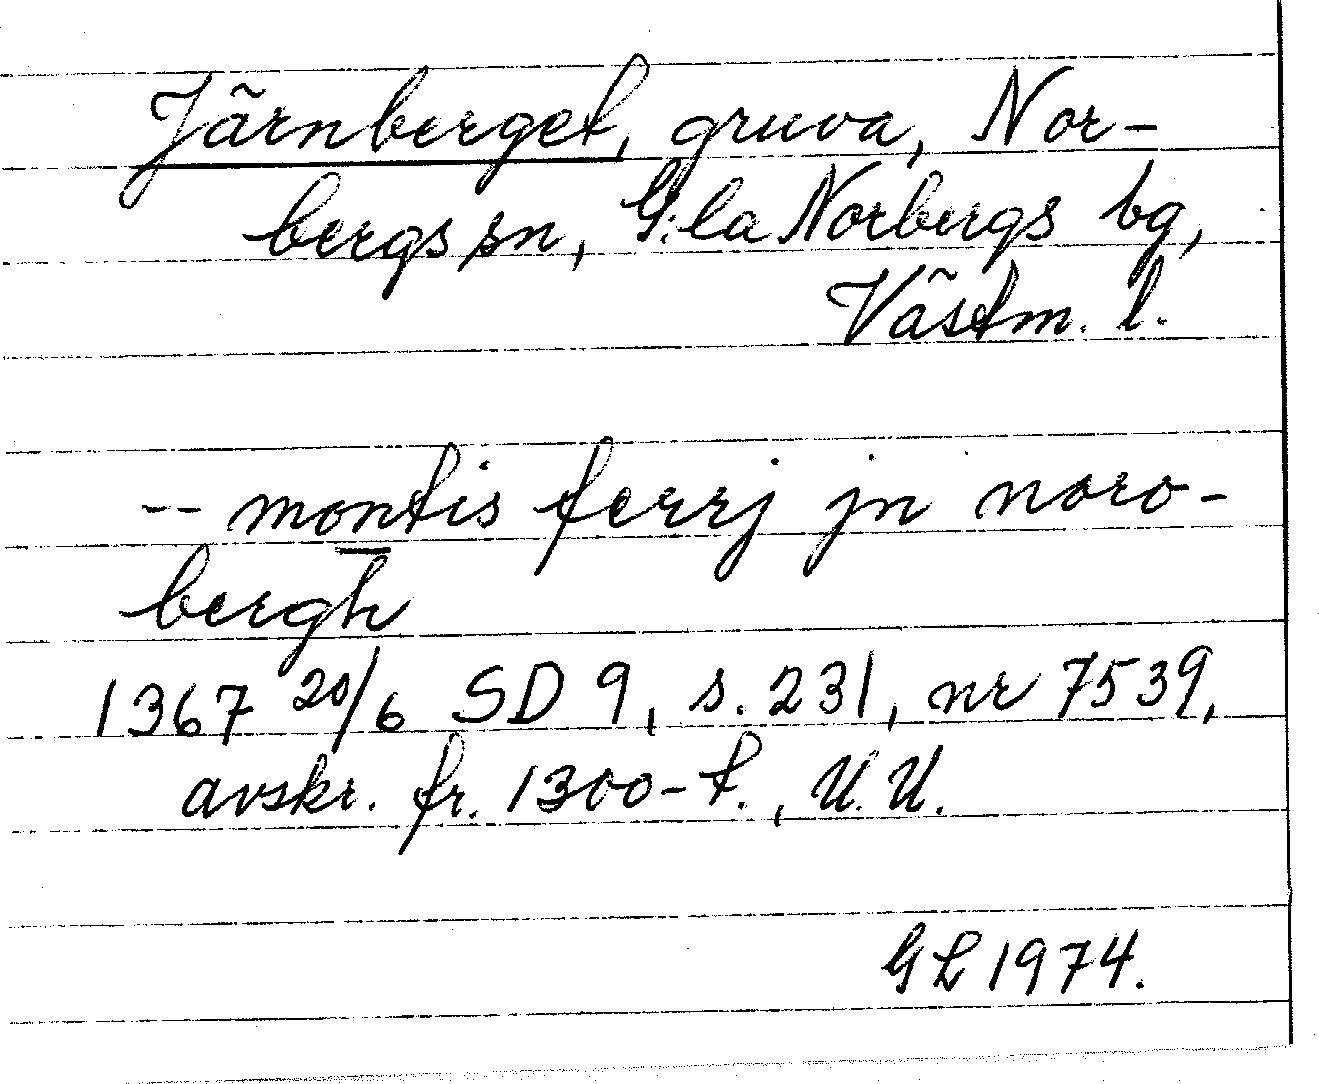 Järnberget, gruva, Nor-
bergs sn, G:la Norbergs bg,
Västm. l.
-- montis ferrj jn noro-
bergh
1367 20/6 SD 9, s. 231, nr 7539,
avskr. fr. 1300-t., U.U.
GL 1974.